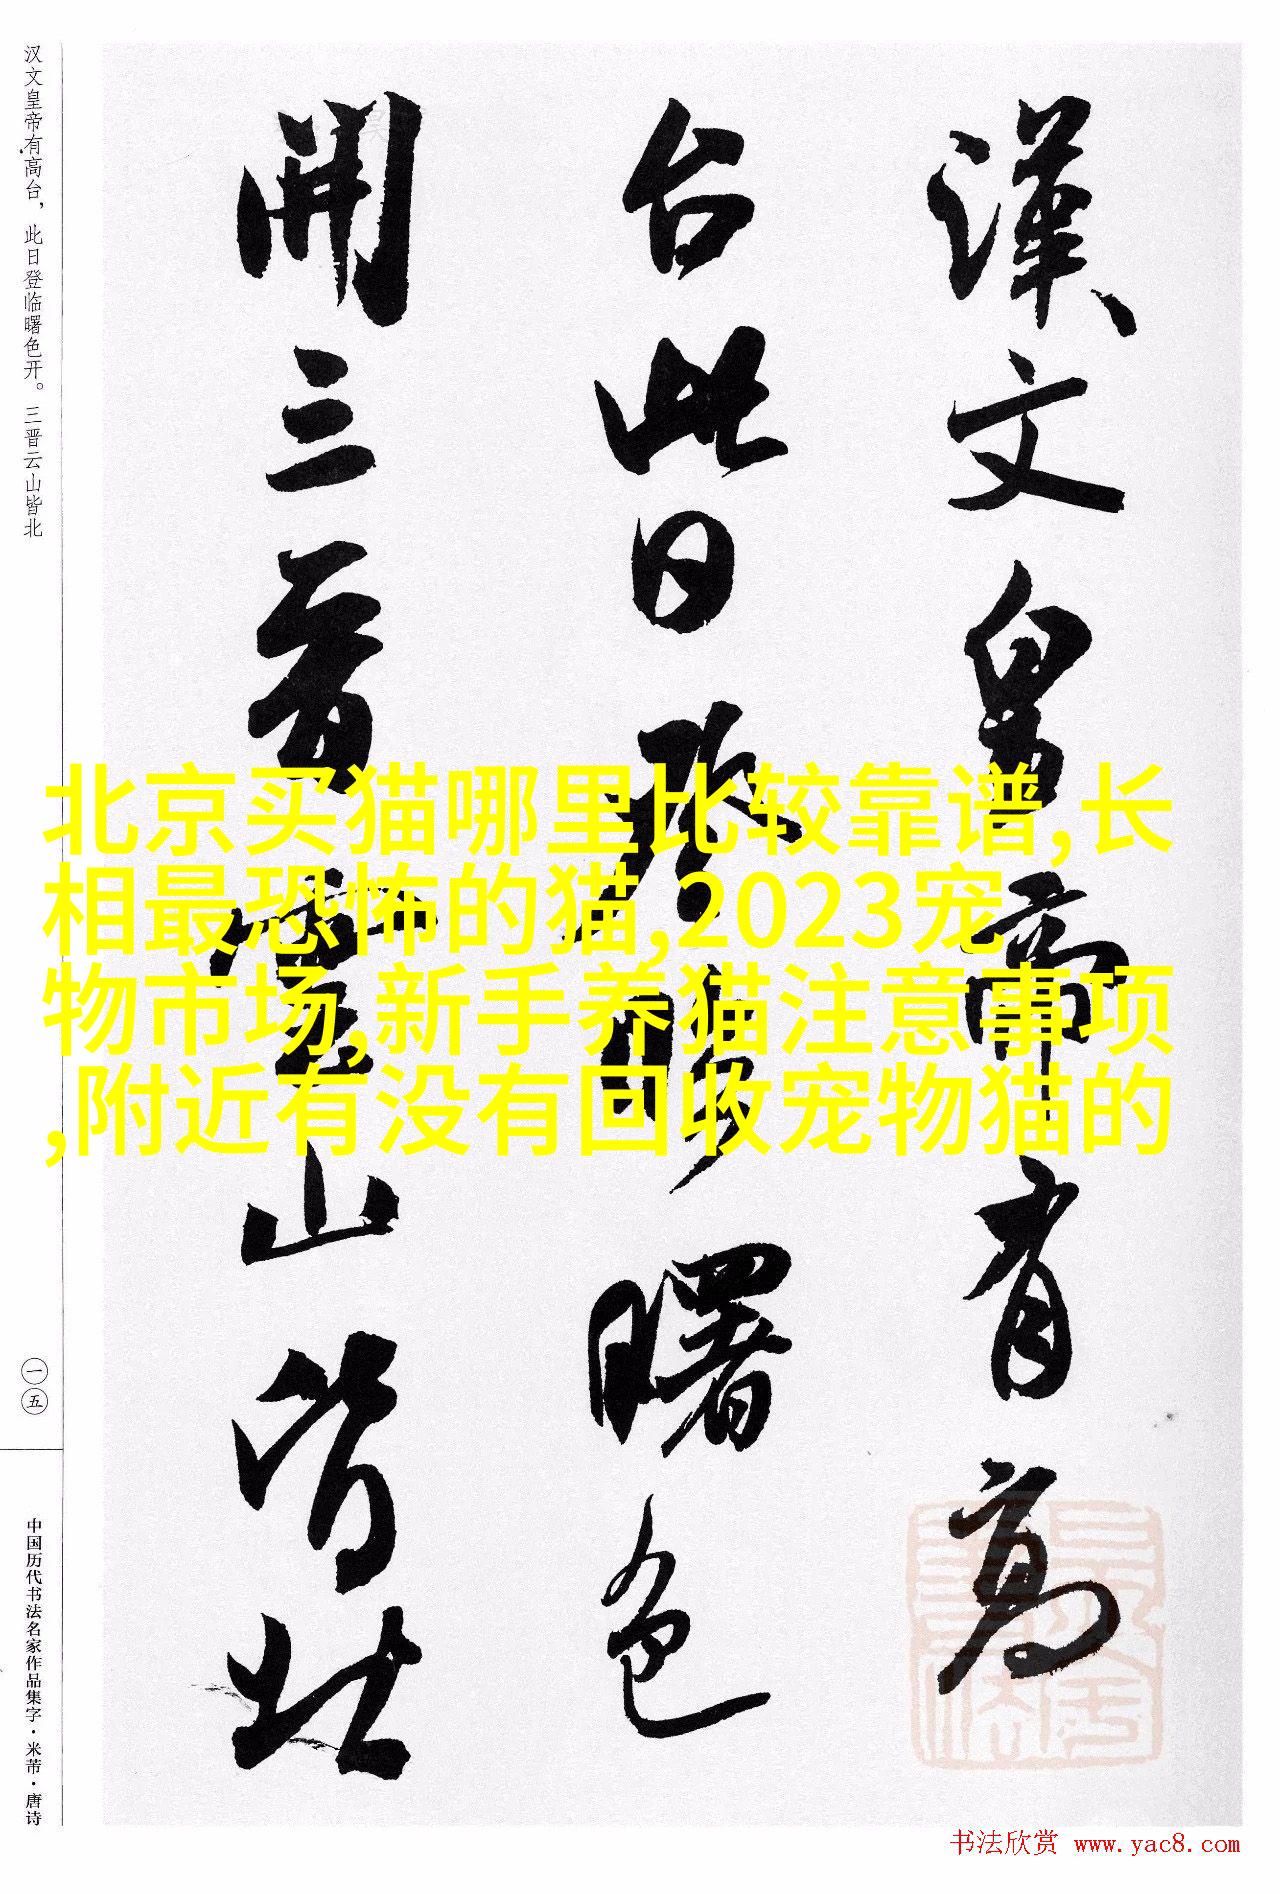 漢文皇帝有高
台此日登臨曙色
開三晉雲山皆北
汉文皇帝有高台，此日登临曙色开。三晋云山皆北
北京买猫哪里比较靠谱,长
相最恐怖的猫,2023宠
物市场,新手养猫注意事项
,附近有没有回收宠物猫的
一五
中国历代书法名家作品集字·米芾·唐诗
书法欣赏 www.yac8.com